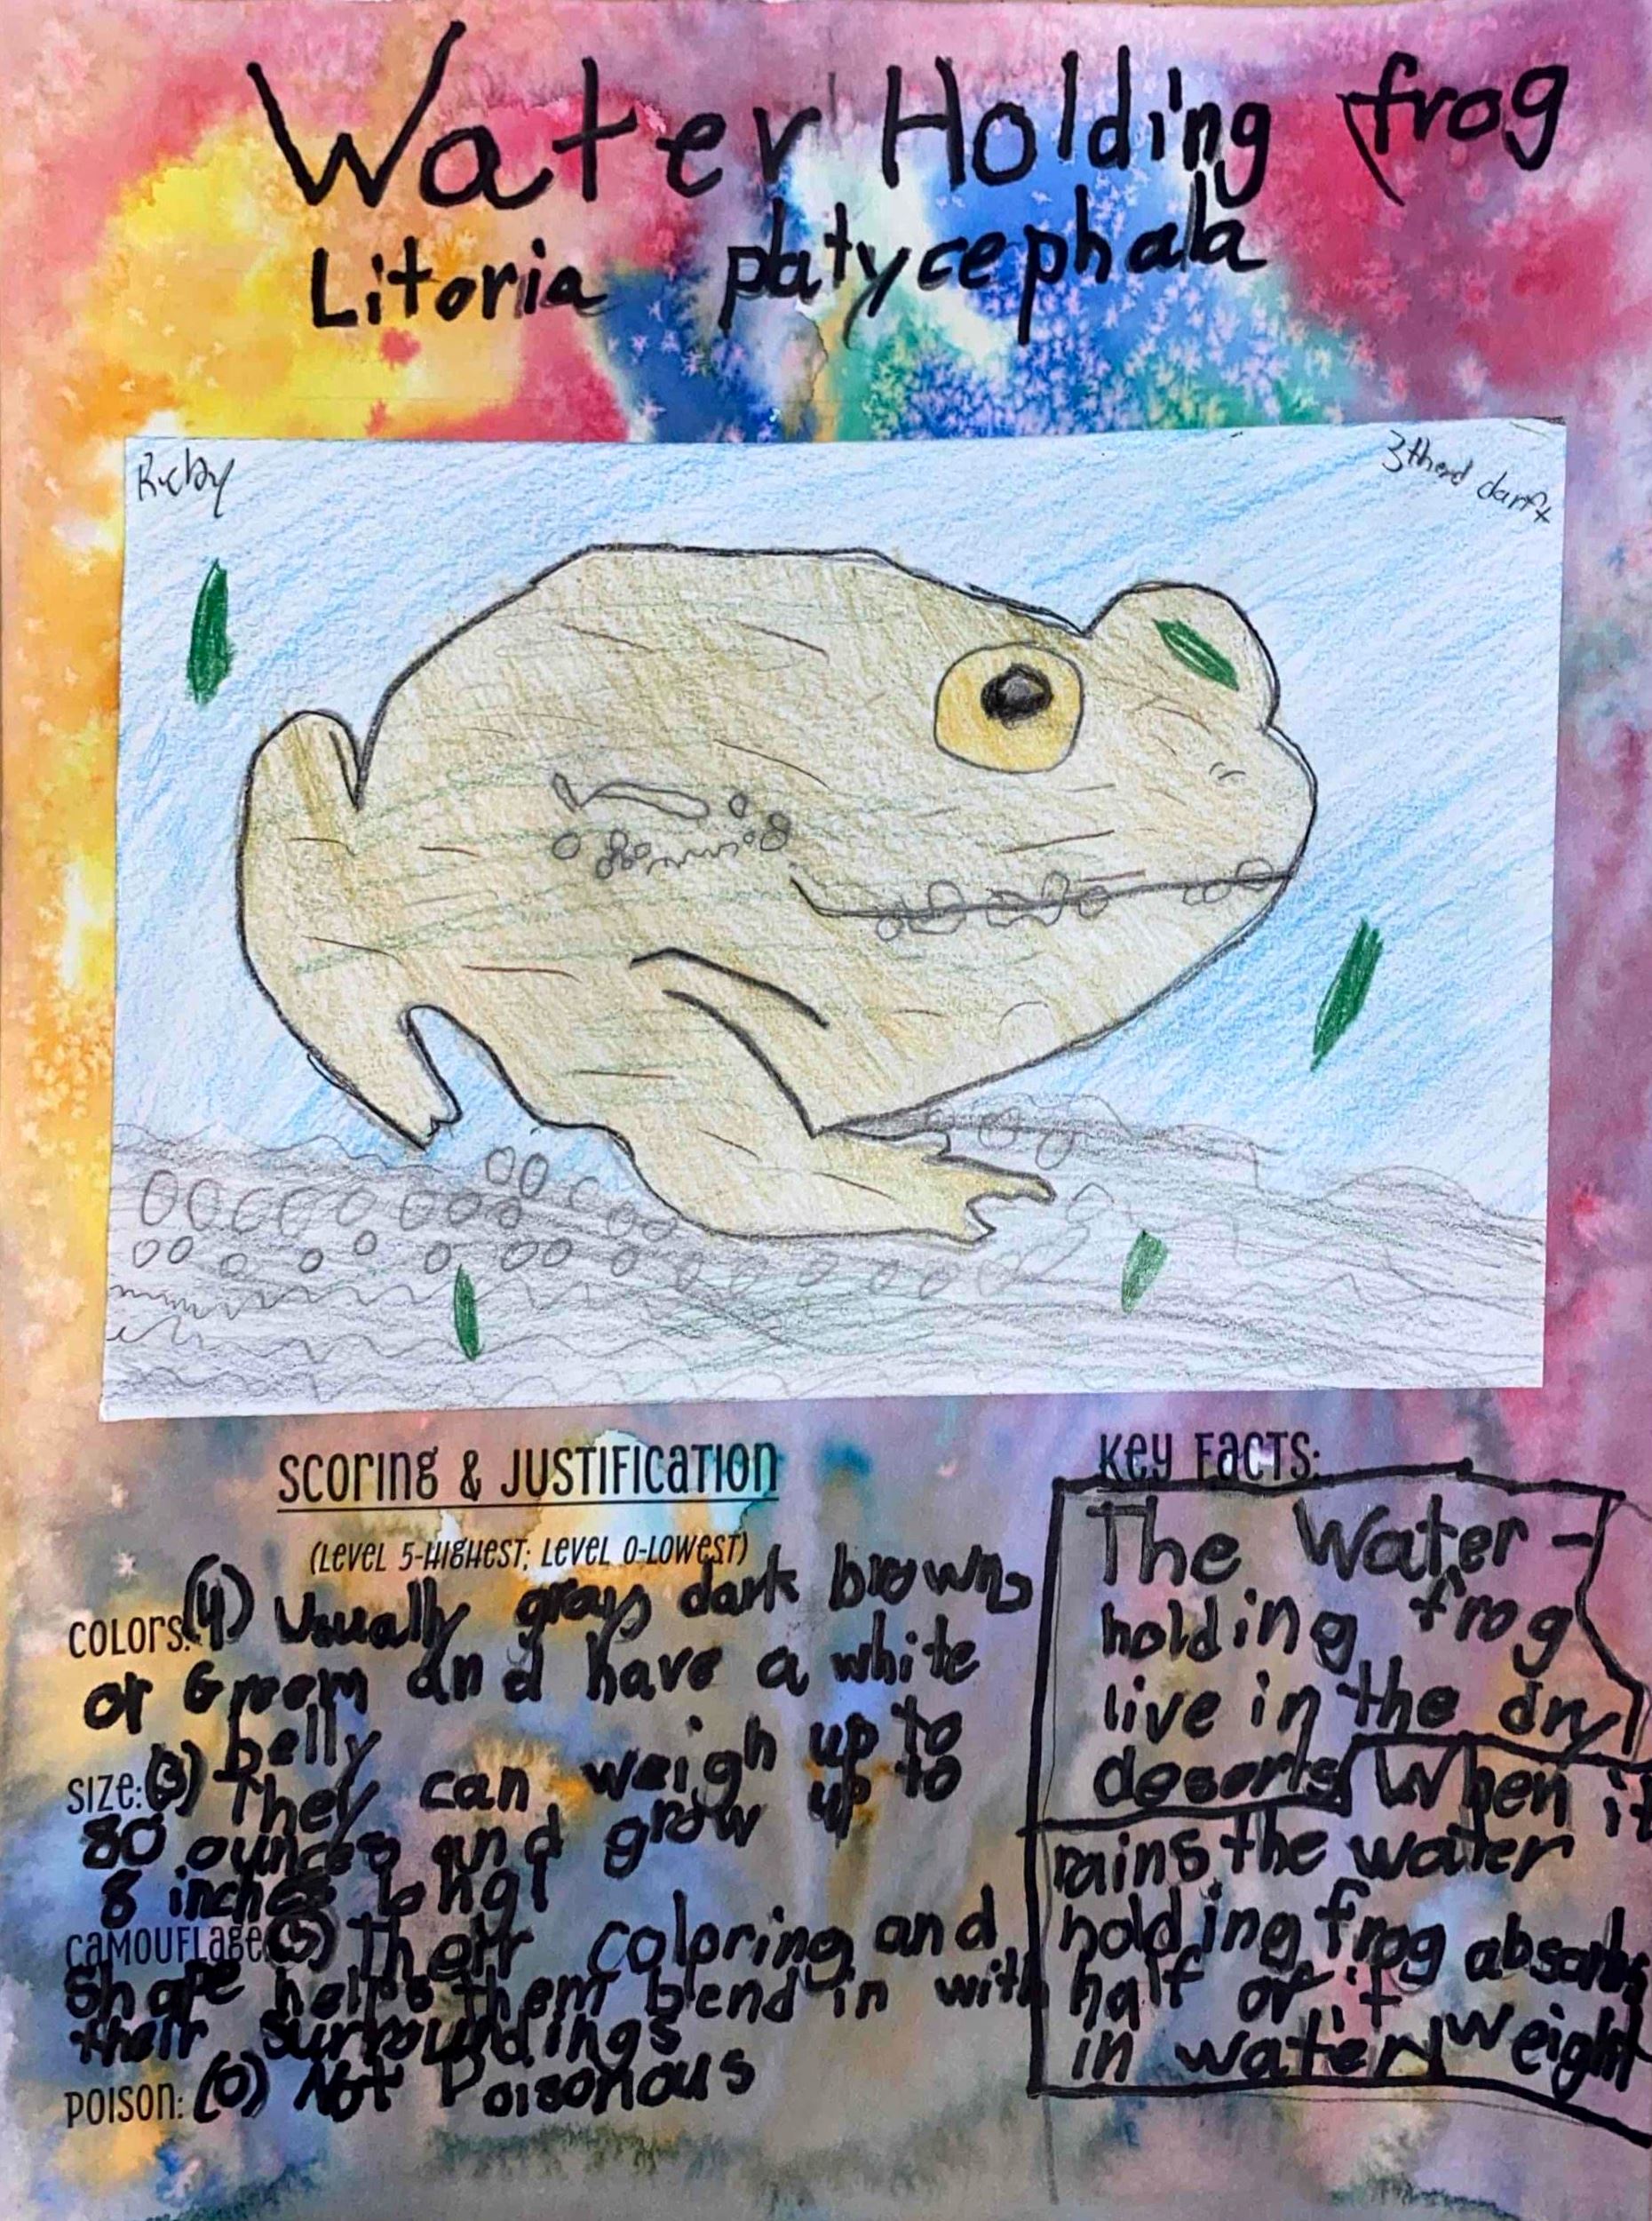 Water Holding frog
Litoria platycephala
3therd darft
Scoring & Justification
(Level 5-Highest; Level 0-Lowest)
Colors: (4) Usually gray, dark brown,
or Green and have a white
belly
Size: (3) They can weigh up to
80 ounces and grow up to
8 inches long!
Camouflage: (5) Their coloring and
shape helps them bend in with
their surroundings
Poison: (0) Not Poisonous
Key Facts:
The Water-
holding frog
live in the dry
deserts When it
rains the water
holding frog absorbs
half of it
in water weight